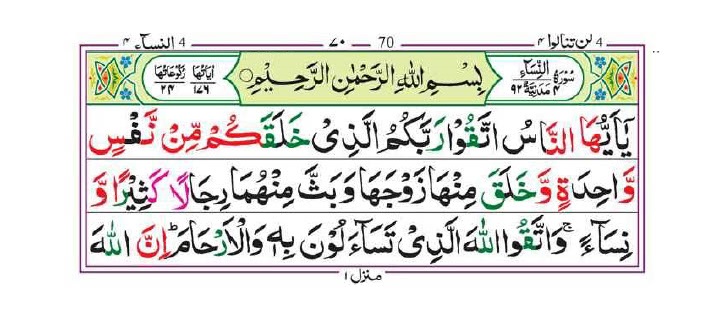 لن تنالوا ٤ 4 70 ٧٠ النسآء ٤ 4
سُوْرَةُ النِّسَآءِ مَدَنِيَّةٌ ٤ ٩٢
بِسْمِ اللّٰهِ الرَّحْمٰنِ الرَّحِيْمِ
اٰيَاتُهَا ١٧٦ رُكُوْعَاتُهَا ٢٤
يٰۤاَيُّهَا النَّاسُ اتَّقُوْا رَبَّكُمُ الَّذِيْ خَلَقَكُمْ مِّنْ نَّفْسٍ
وَّاحِدَةٍ وَّخَلَقَ مِنْهَا زَوْجَهَا وَبَثَّ مِنْهُمَا رِجَالًا كَثِيْرًا وَّ
نِسَآءً ۚ وَاتَّقُوا اللّٰهَ الَّذِيْ تَسَآءَلُوْنَ بِهٖ وَالْاَرْحَامَ ؕ اِنَّ اللّٰهَ
منزل ١